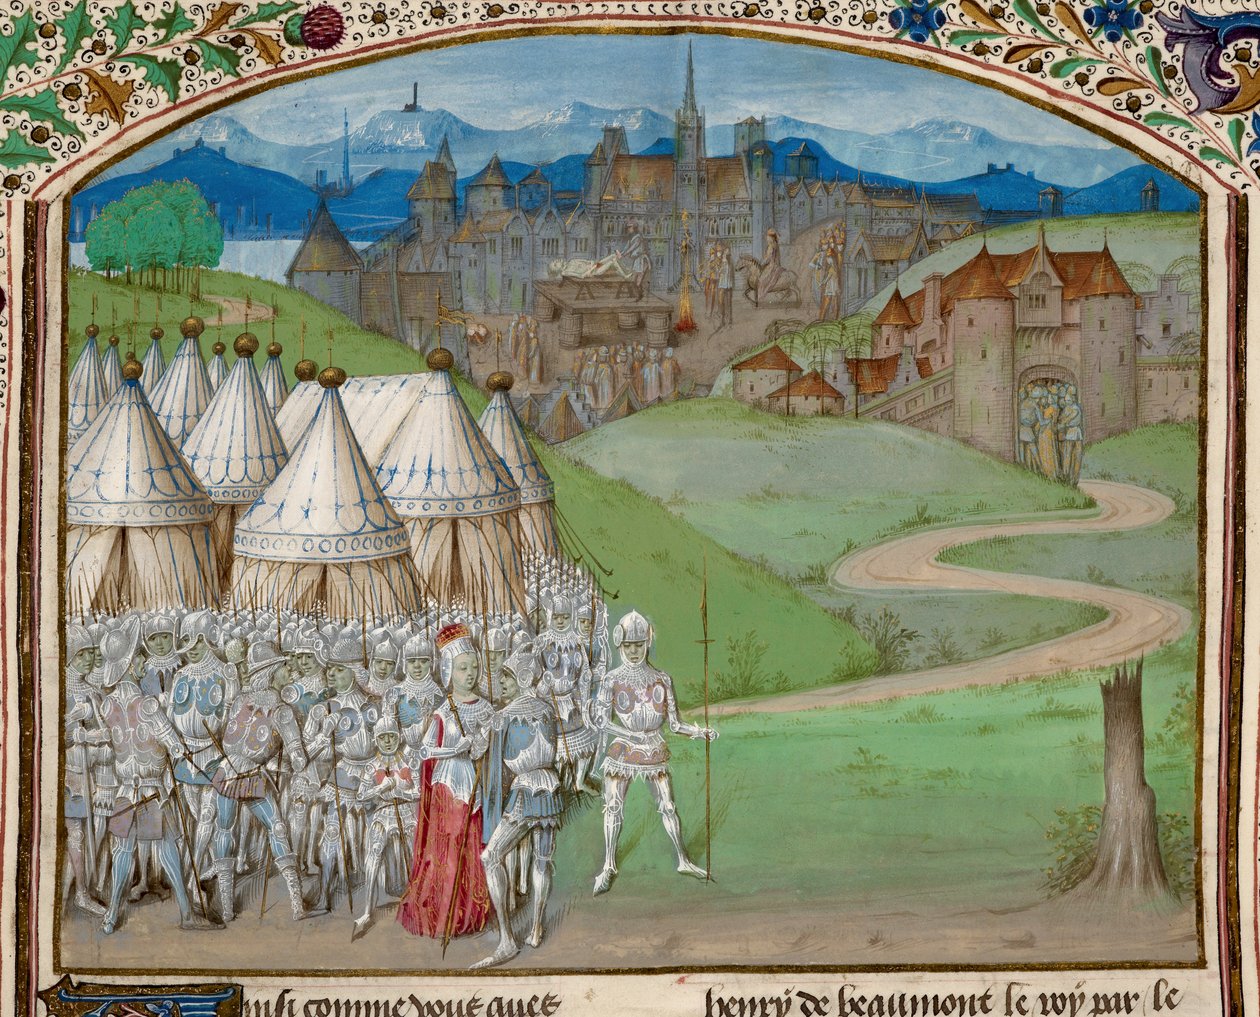 Ainsi comme vous aves
henrÿ de beaumont le roÿ par le